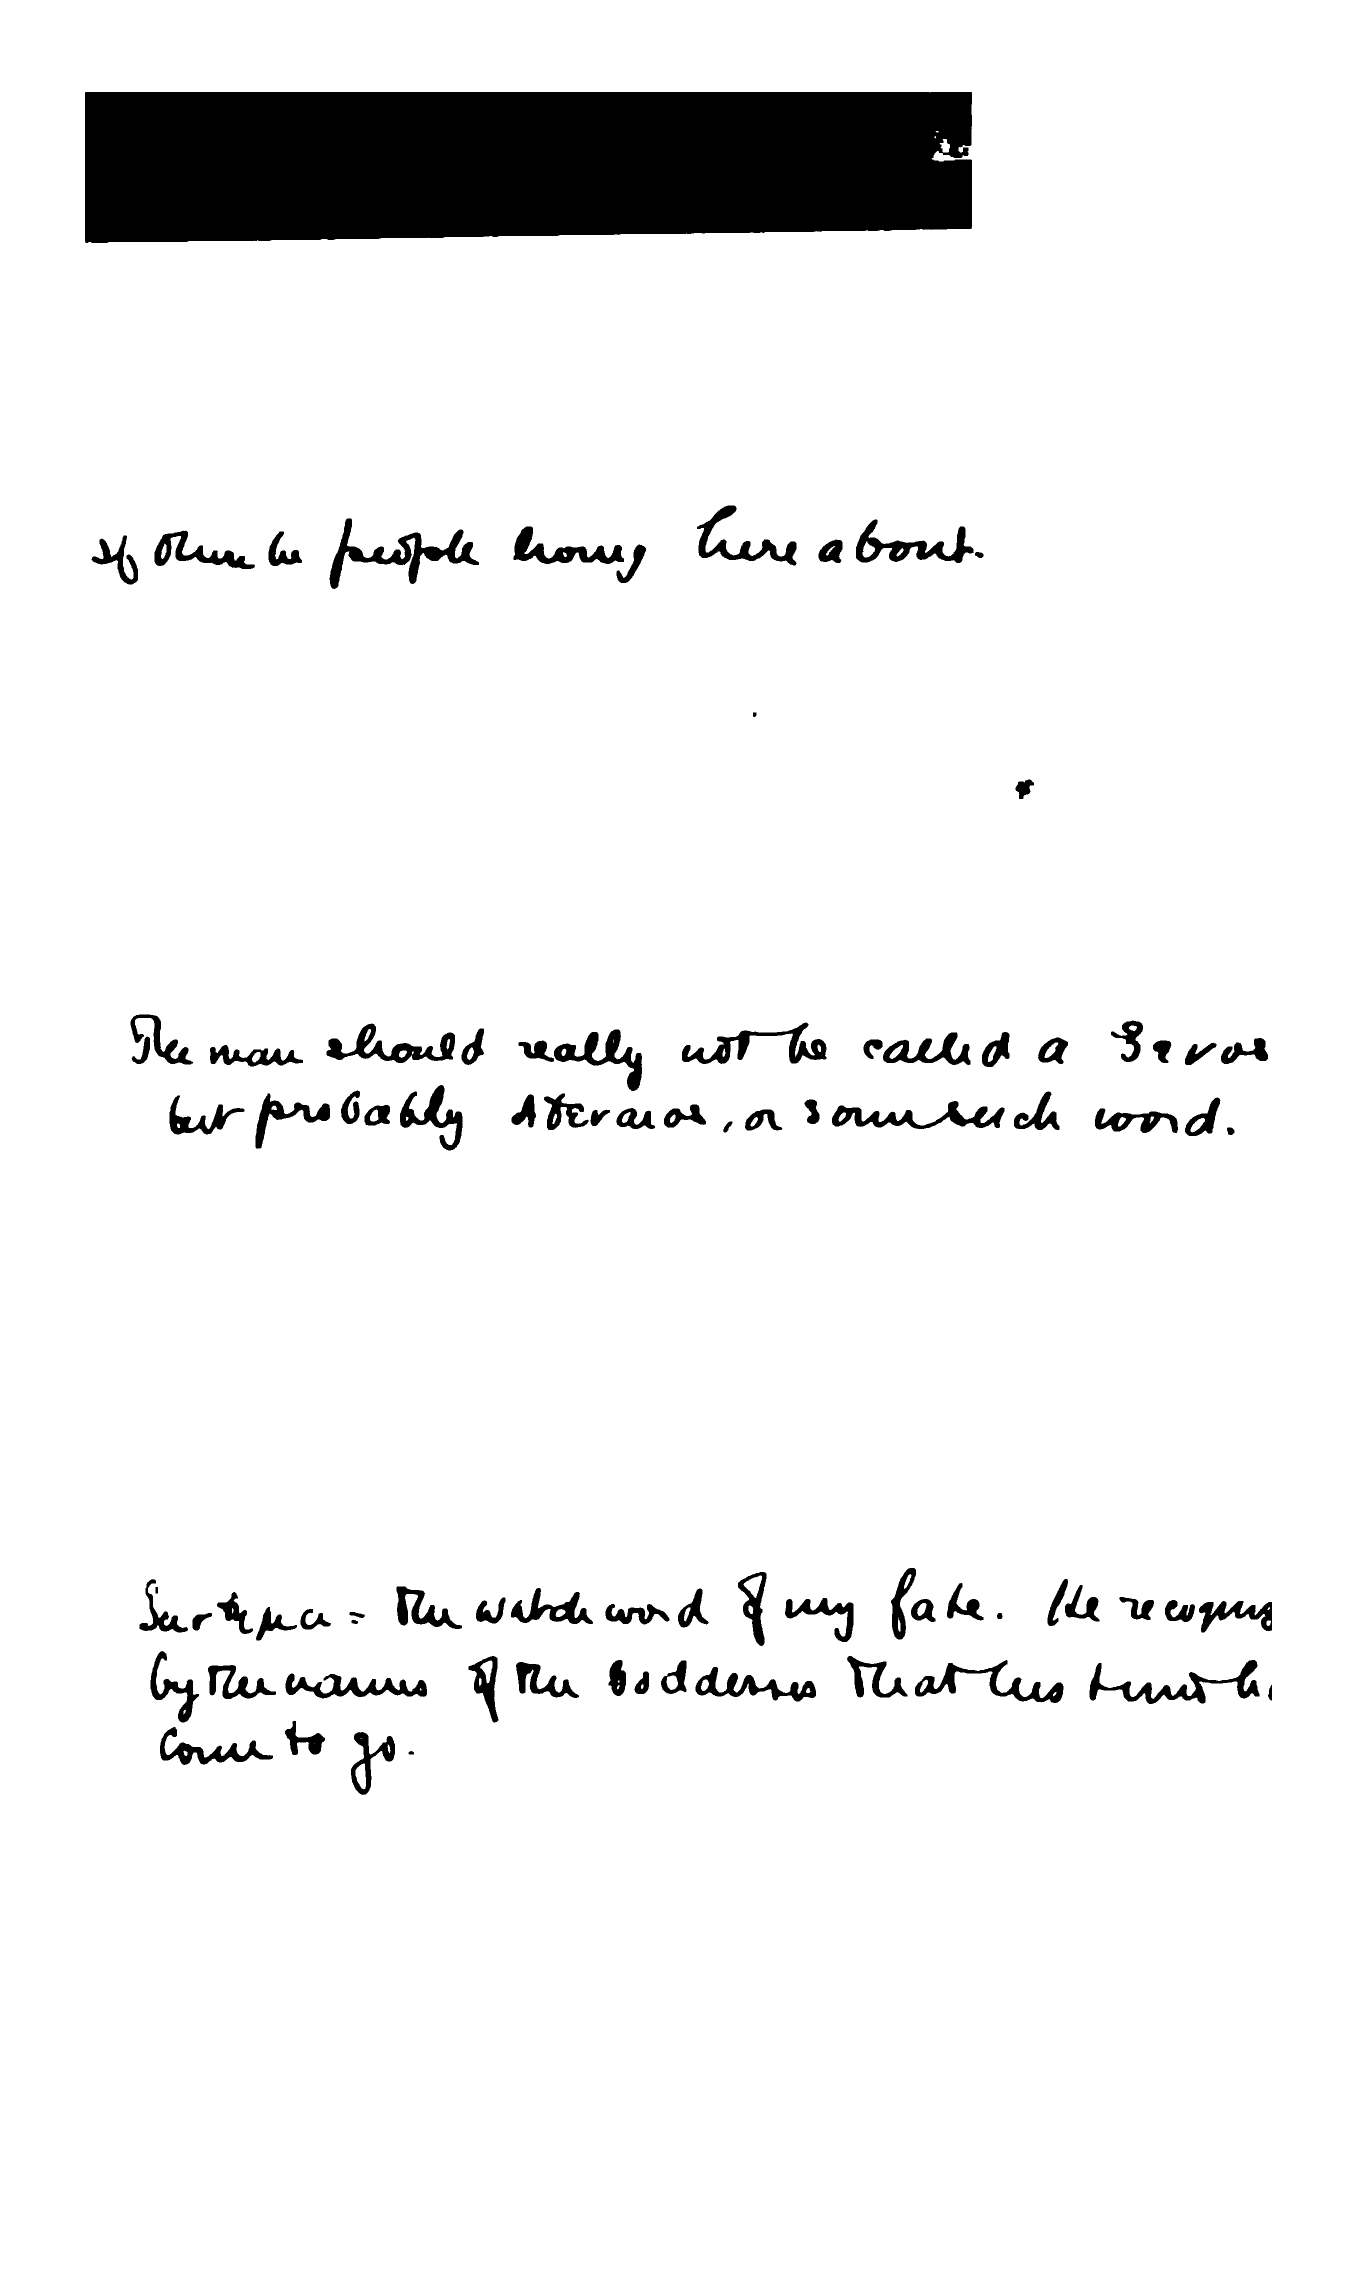 If there be people living here about.
The man should really not be called a ξενος
but probably , or some such word.
ξυνθημα = the watch word of my fate. He recogniz
by the names of the Goddesses that his time ha
come to go.